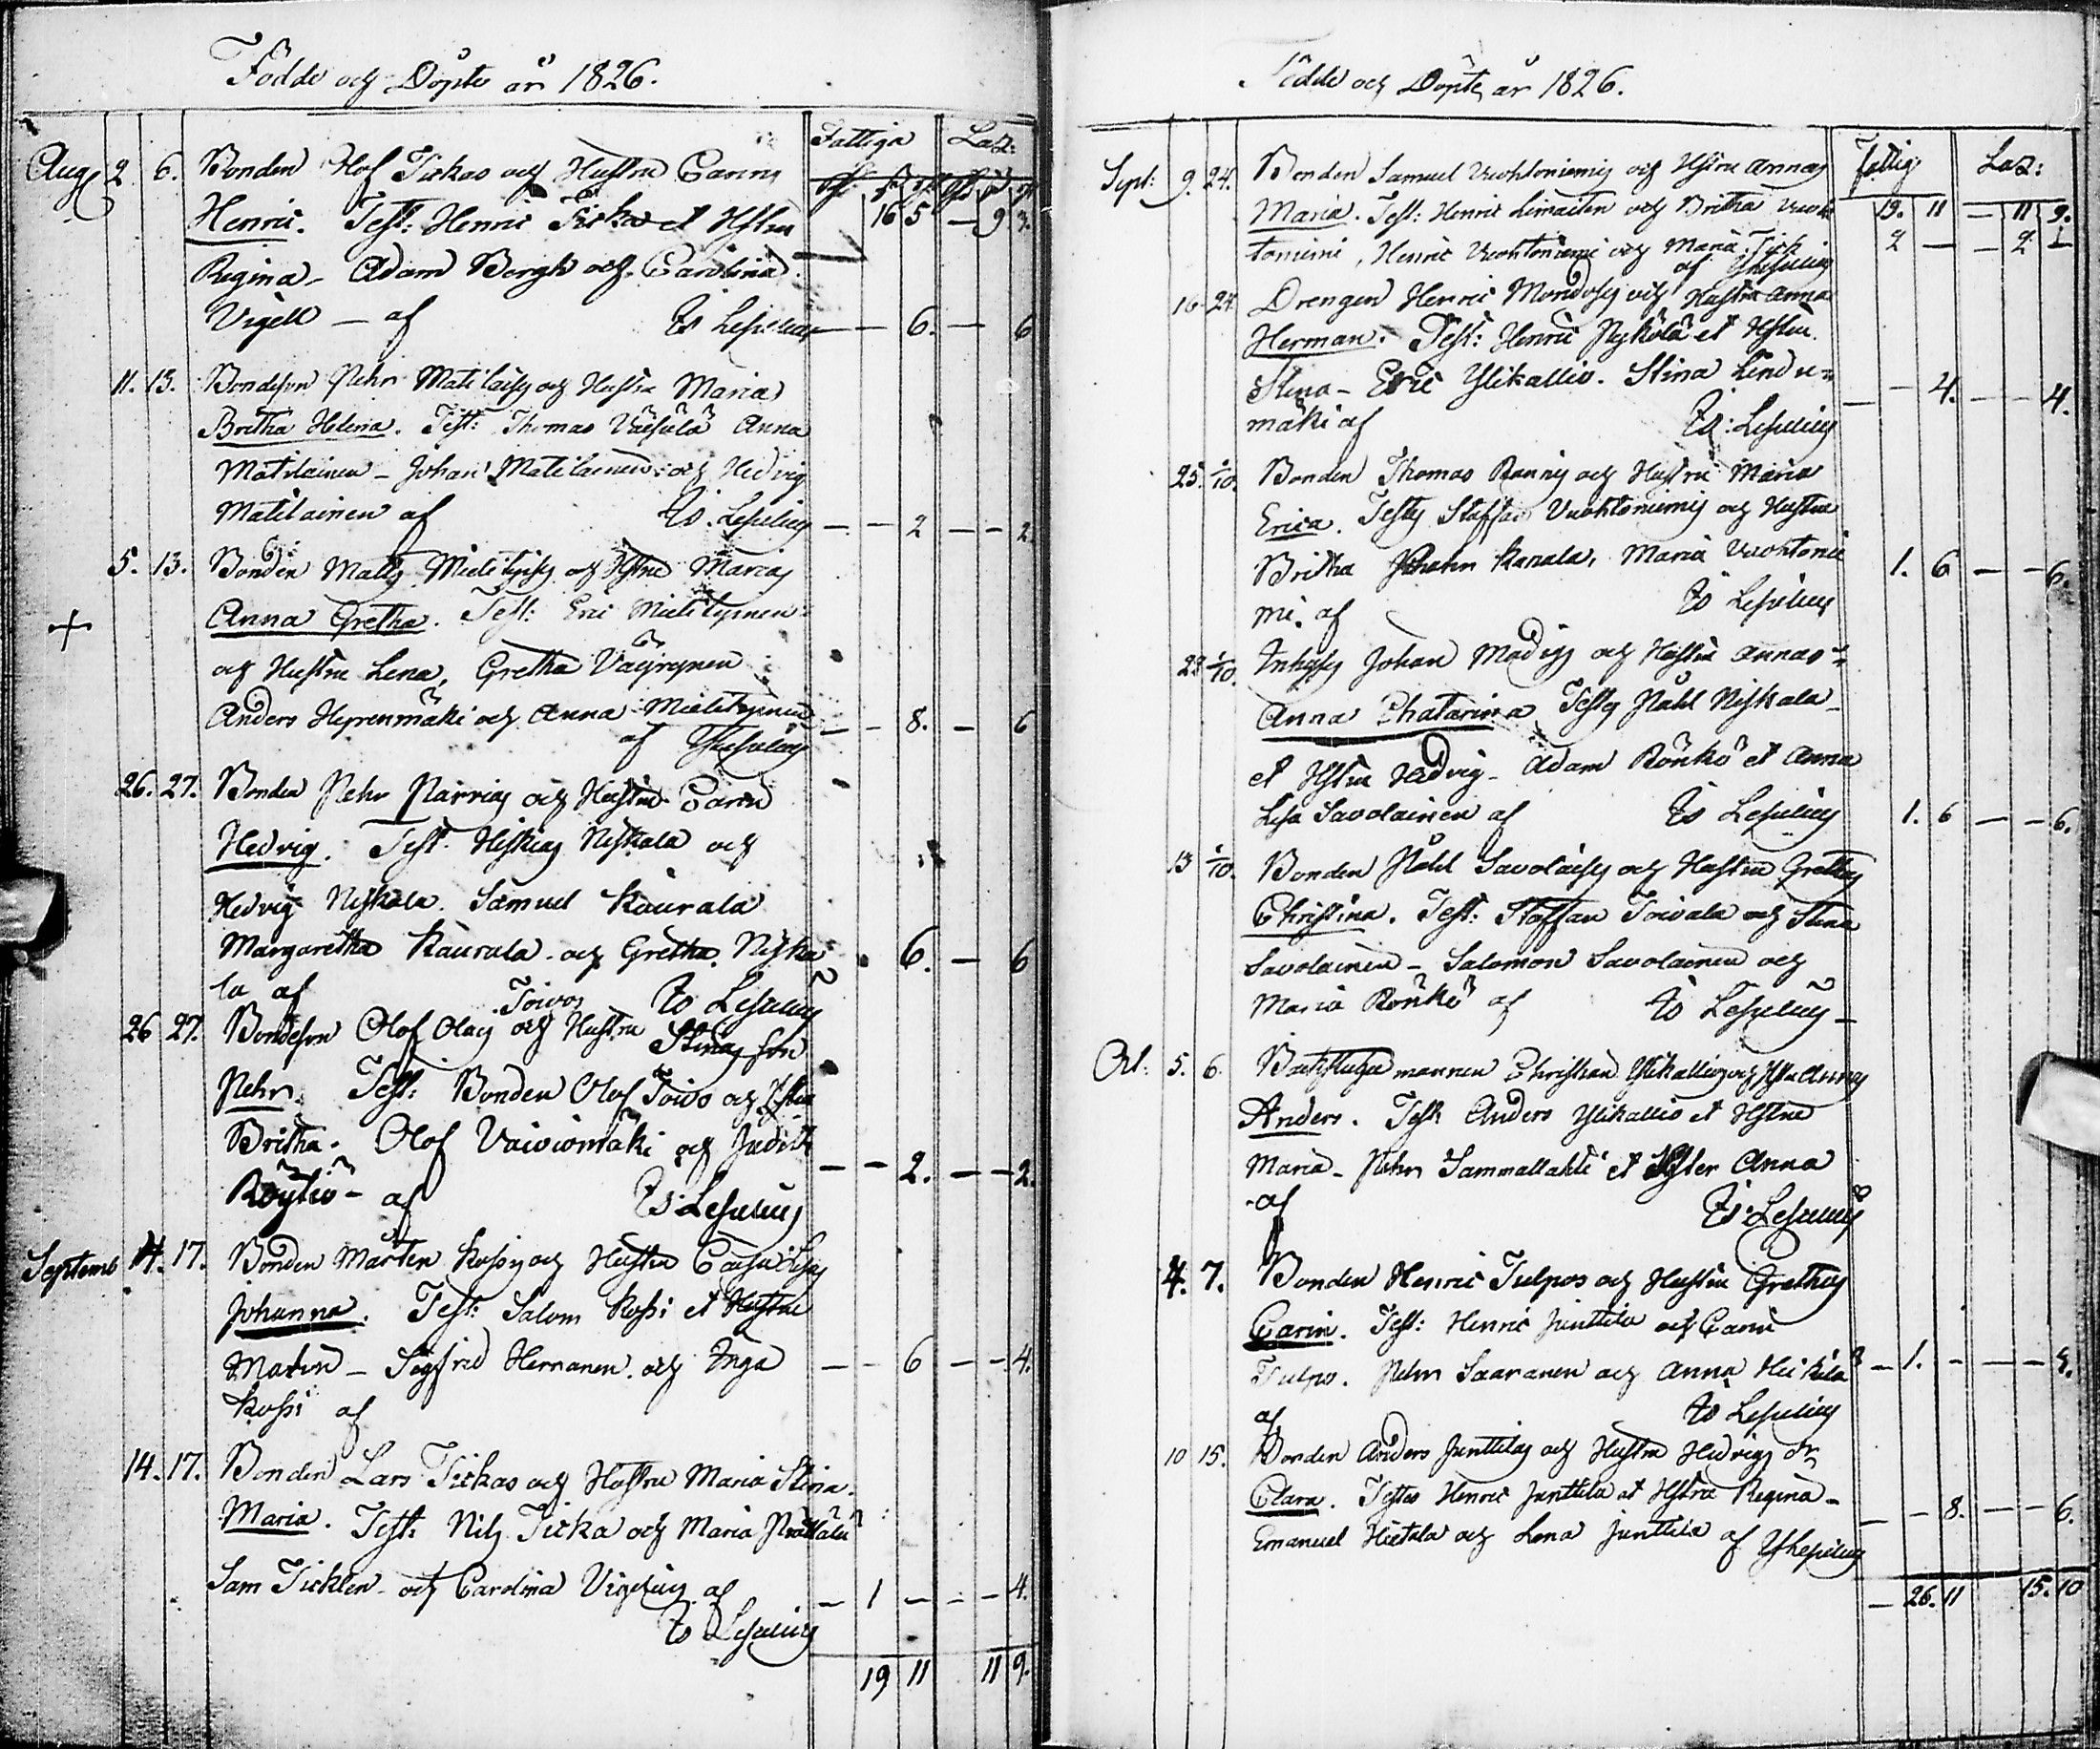 Födde och Döpte år 1826.
Fattiga Laz:
Aug 2 6. Bonden Olof Tickas och Hustru Carins
16 5 — 9 3.
Henric. Test: Henric Ticka et Hstru
Regina – Adam Bergh och Carolina
Vigell – af Is Lesilius — — 6. — 6
11. 13. Bondeson Pehr Matilais och Hustru Maria
Britha Helena. Test: Thomas Väisälä Anna
Matilainen – Johan Matilainen och Hedvig
Matilainen af Is. Lesilius — — 2 — — 2
5. 13. Bonden Matts Mielityis och Hstru Marias
Anna Gretha. Test: Eric Mielitynen
och Hustru Lena, Gretha Väyrynen
Anders Heprenmäki och Anna Mielitynen — — 8. — 6
af
26. 27. Bonden Pehr Parrias och Hustru Carin
Hedvig. Test Hiskias Niskala och
Hedvig Niskala. Samuel Kaurala
Margaretha Kaurala och Gretha Niska 6. — 6
la af Is Lesilius
Toivos
26 27. Bondeson Olof Olas och Hustru Stinas son
Pehr. Test: Bonden Olof Toivo och Hstru
Britha. Olof Vaivionmäki och Judith — — 2. — — 2.
Röytiö – af Is. Lesilius
Septemb 14. 17. Bonden Mårten Kossis och Hustru Caisa Lisas
Johanna. Test: Salom Kossi et Hustru
Marin – Sigfrid Hernanen och Inga — — 6 — — 4.
Kossi af
14. 17. Bonden Lars Tickas och Hustru Maria Stina
Maria. Test: Nils Ticka och Maria
Sam Ticklen och Carolina Vigelius af — 1 — — — 4.
Is Lesilius
19 11 11 9.
Födde och Döpte år 1826.
Fattig Laz:
Sept: 9. 24. Bonden Samuel Vuohtoniemis och Hstru Annas
19. 11 — 11 9.
Maria. Test: Henric Limaiten och Britha Vuoh
2 — — 2 1
toniemi, Henric Vuohtoniemi och Maria Tick
af
16 24 Drengen Henric Mondos och Hustru Anna
Herman. Test: Henric Pyhälä et Hstru
Stina – Eric Ylikallio. Stina Lindu= — — 4. — — 4.
mäki af Is: Lesilius
25. 1/10. Bonden Thomas Rannis och Hustru Maria
Erica. Testes Staffan Vuohtoniemis och Hustru
Britha Pehr Kanala, Maria Vuohtonie 1. 6 — — 6.
mi. af Is Lesilius
28 1/10. Inhyses Johan Modigs och Hustru Annas
Anna Chatarina Testes Påhl Niskala
et Hstru Hedvig – Adam Rönkö et Anna
Lisa Savolainen af Is Lesilius 1. 6 — — 6.
13 1/10. Bonden Påhl Savolais och Hustru Grethas
Christina. Test: Staffan Toivala och Stina
Savolainen – Salomon Savolainen och
Maria Rönkö af Is Lesilius –
Oct: 5. 6. Backstugumannen Christian Ylikallios och Hstru Annas
Anders. Test Anders Ylikallio et Hstru
Maria – Pehr Sammallahti et Hstru Anna
af Is Lesilius
4. 7. Bonden Henric Tulpos och Hustru Grethas
Carin. Test: Henric Junttila och Carin
Tulpo. Pehr Saaranen och Anna Heikilä — 1. — — — 4.
af Is Lesilius
10 15. Bonden Anders Junttilas och Hustru Hedvigs dr
Clara. Testes Henric Junttila et Hstru Regina – — — 8. — — 6.
Emanuel Hietala och Lena Junttila af
— 26. 11 15. 10